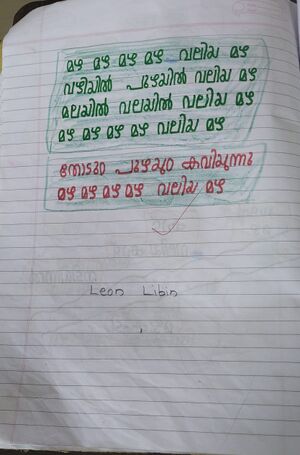 മഴ മഴ മഴ മഴ വലിയ മഴ
വഴിയിൽ പുഴയിൽ വലിയ മഴ
മലയിൽ വലയിൽ വലിയ മഴ
മഴ മഴ മഴ മഴ വലിയ മഴ
തോടും പുഴയും കവിയുന്നു
മഴ മഴ മഴ മഴ വലിയ മഴ
Leon Libin